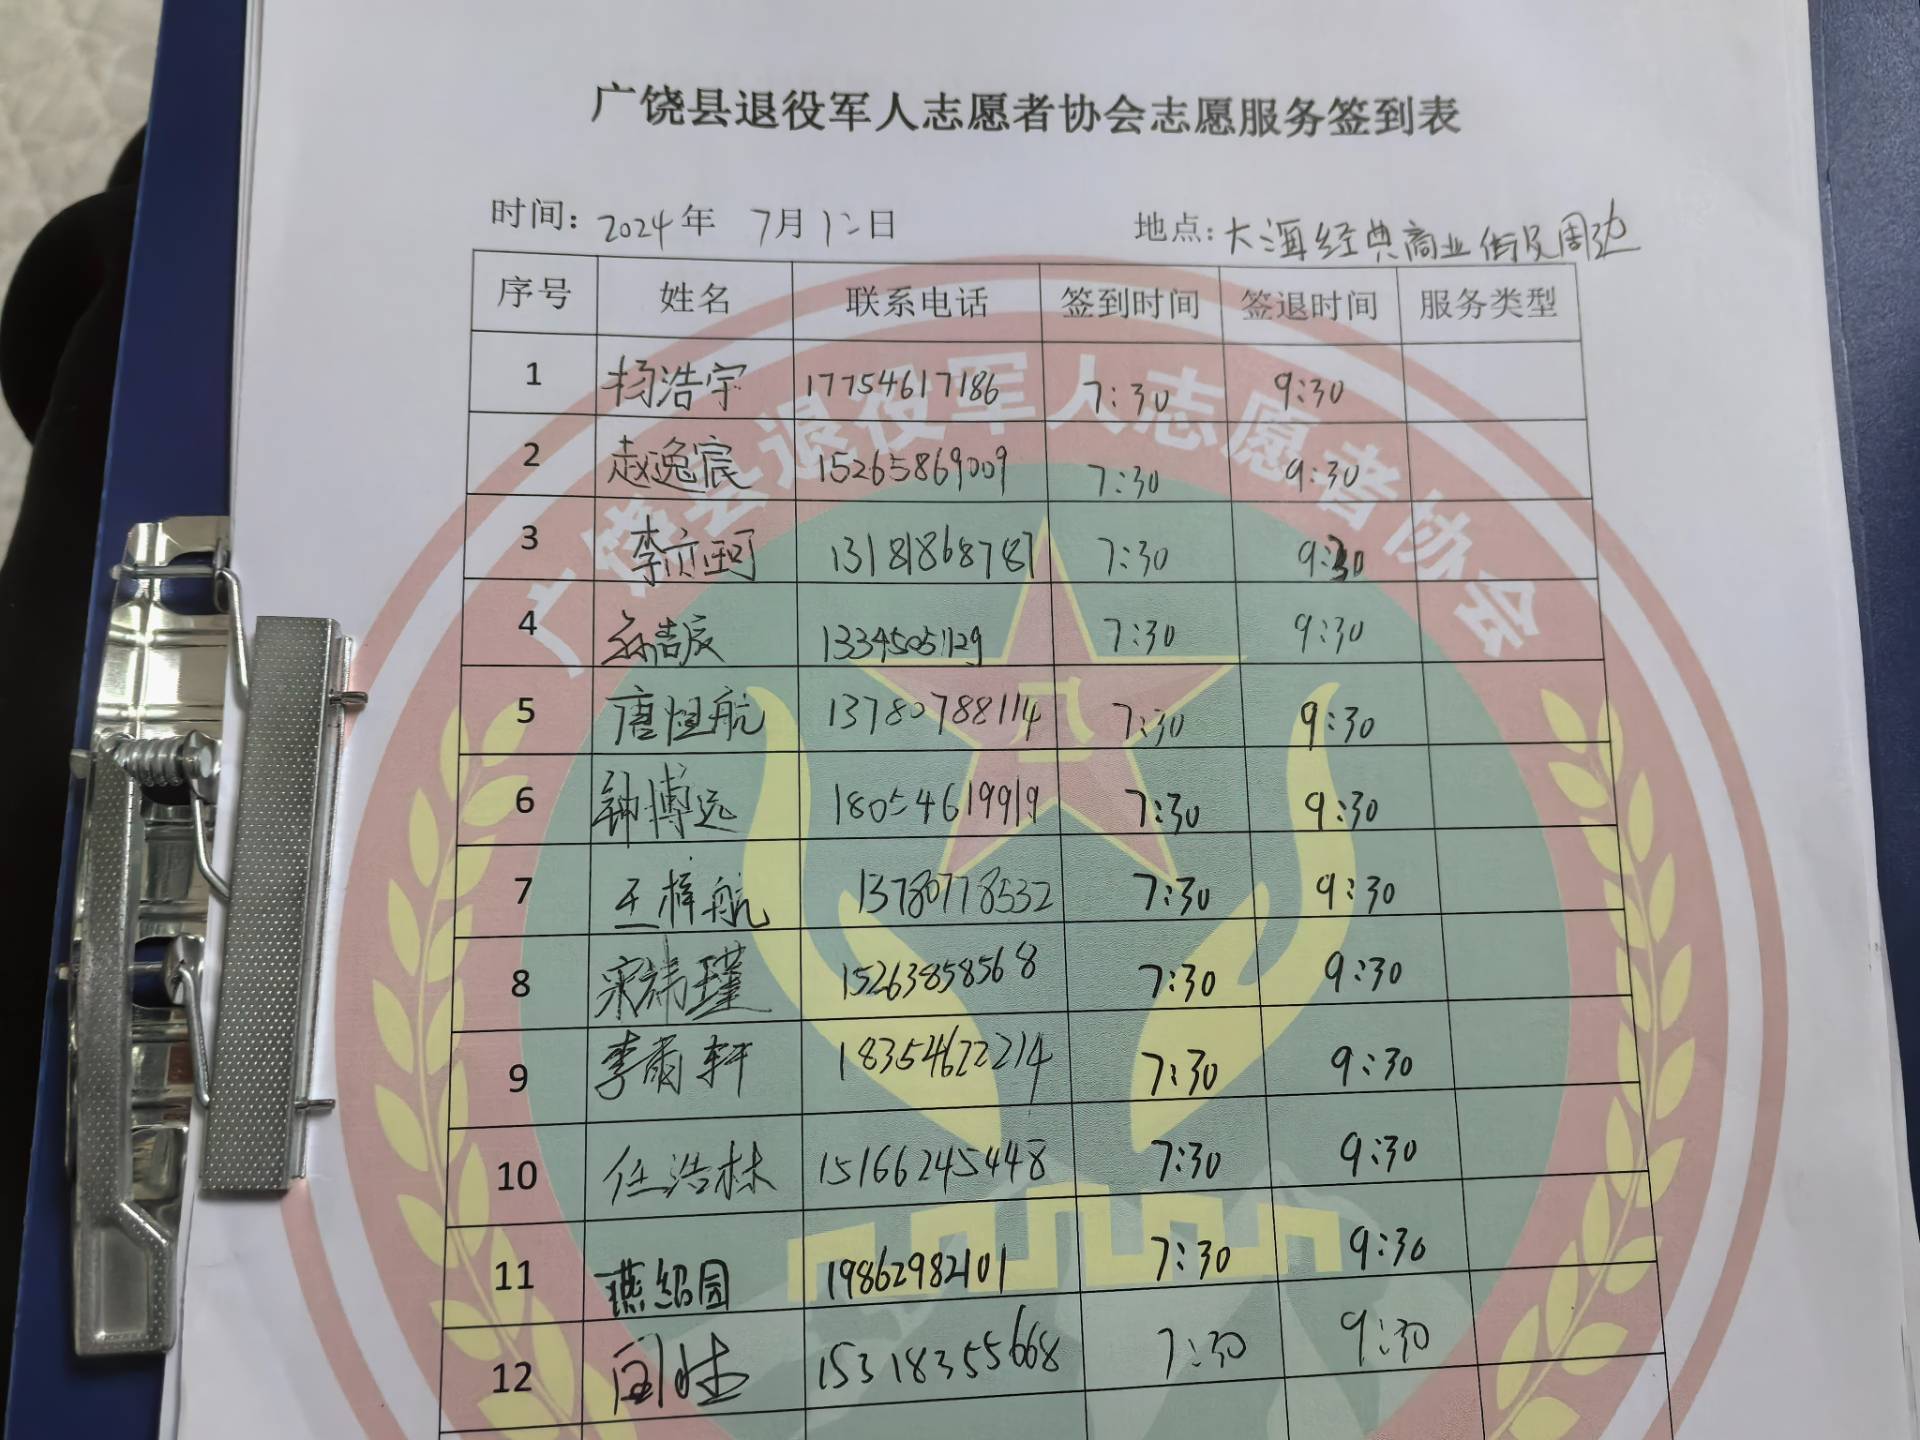 广饶县退役军人志愿者协会志愿服务签到表
时间：2024年 7月12日 地点：大海经典商业街及周边
序号 姓名 联系电话 签到时间 签退时间 服务类型
1 杨浩宇 17754617186 7:30 9:30
2 赵逸宸 15265869009 7:30 9:30
3 李亦珂 13181868787 7:30 9:30
4 孙浩宸 13345051129 7:30 9:30
5 唐恒航 13780788114 7:30 9:30
6 钟博远 18054619919 7:30 9:30
7 王梓航 13780778532 7:30 9:30
8 宋祎瑾 15263858568 7:30 9:30
9 李雨轩 18354622214 7:30 9:30
10 任浩林 15166245448 7:30 9:30
11 燕绍园 19862982101 7:30 9:30
12 15318355668 7:30 9:30
广饶县退役军人志愿者协会